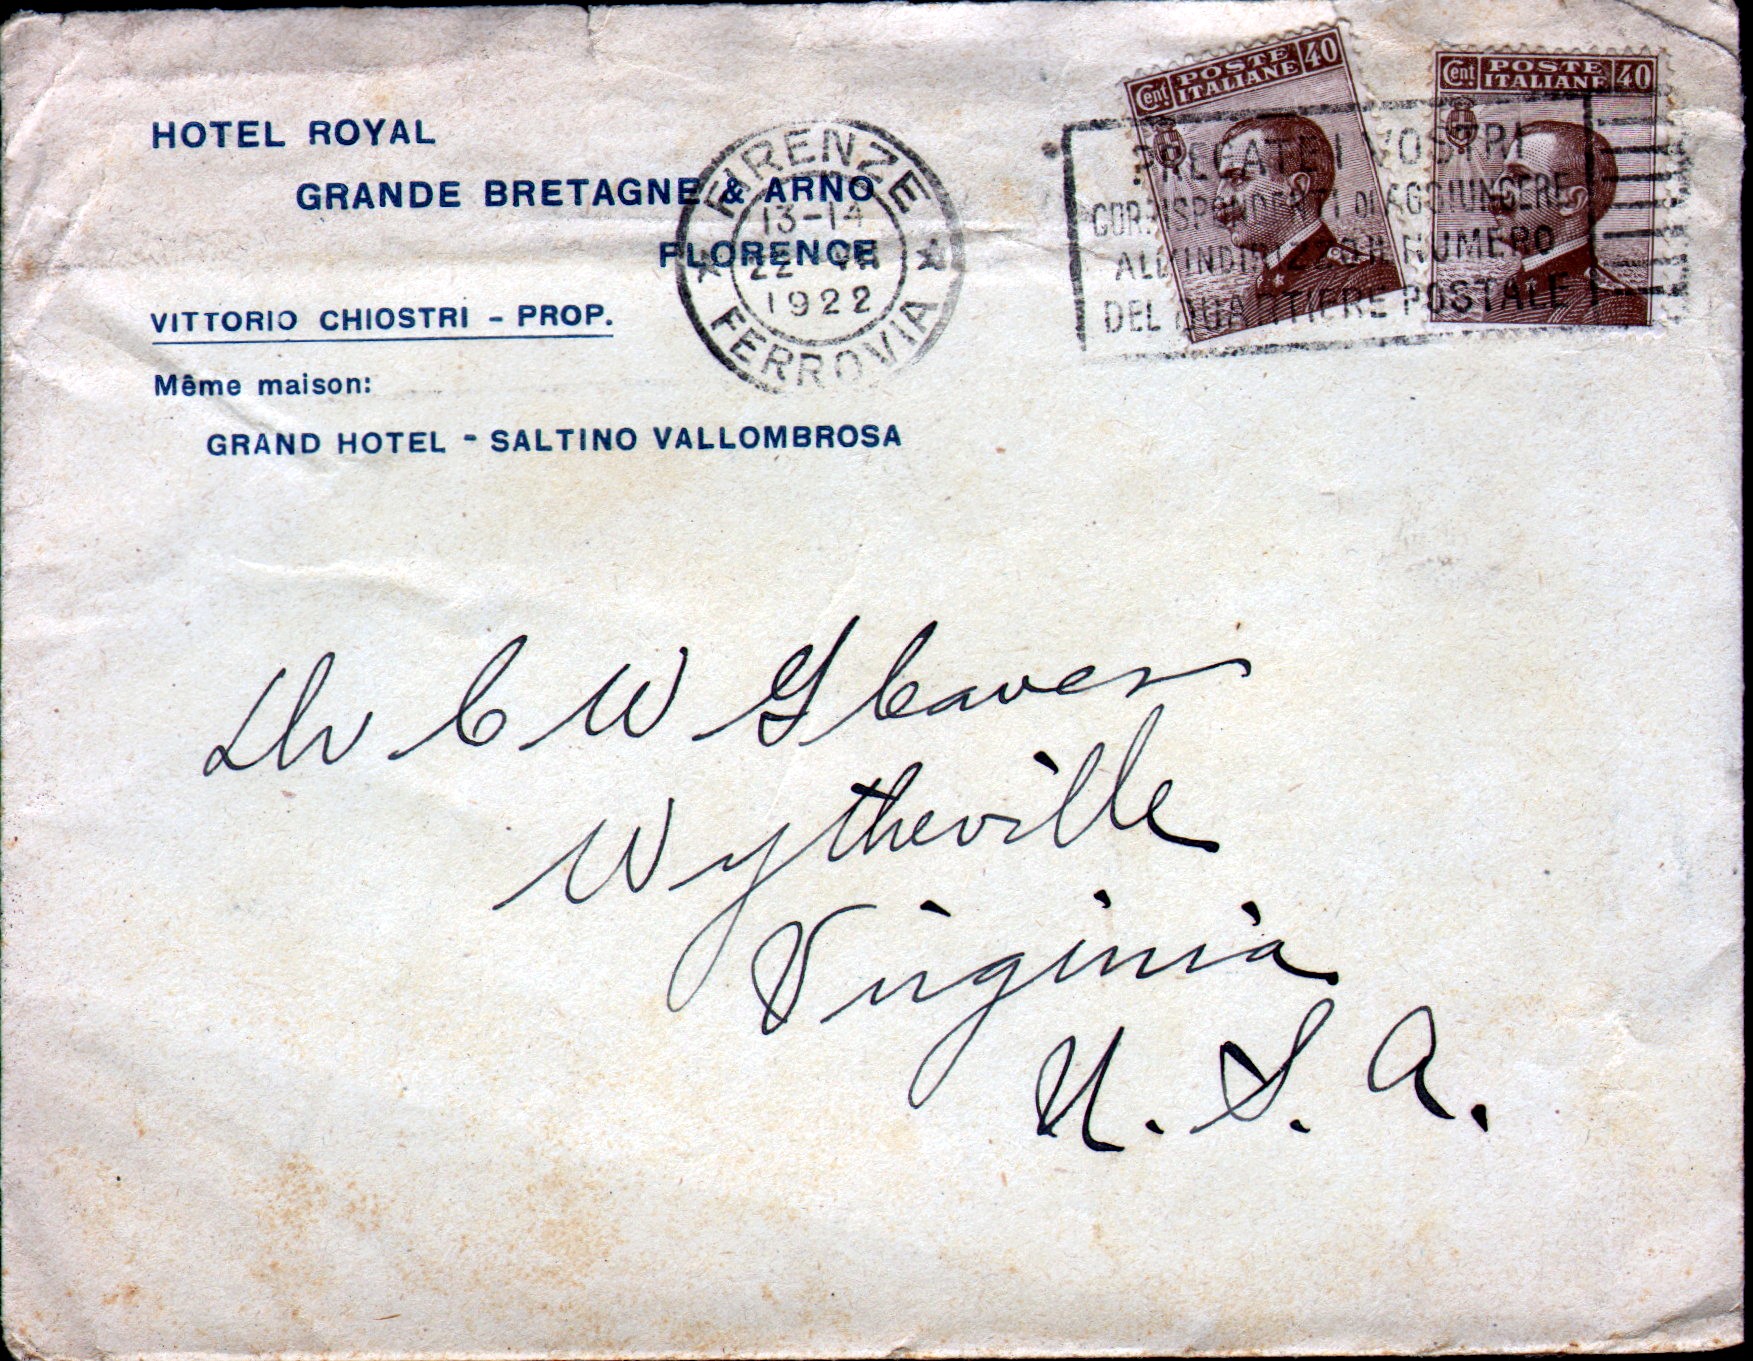 HOTEL ROYAL
GRANDE BRETAGNE & ARNO
FLORENCE
VITTORIO CHIOSTRI - PROP.
Même maison:
GRAND HOTEL - SALTINO VALLOMBROSA
FIRENZE
13-14
22
1922
FERROVIA
Cent. POSTE ITALIANE 40
Cent. POSTE ITALIANE 40
PREGATE I VOSTRI
CORRISPONDENTI DI AGGIUNGERE
ALL'INDIRIZZO IL NUMERO
DEL QUARTIERE POSTALE
Dr C W Gleaves
Wytheville
Virginia
U. S. A.